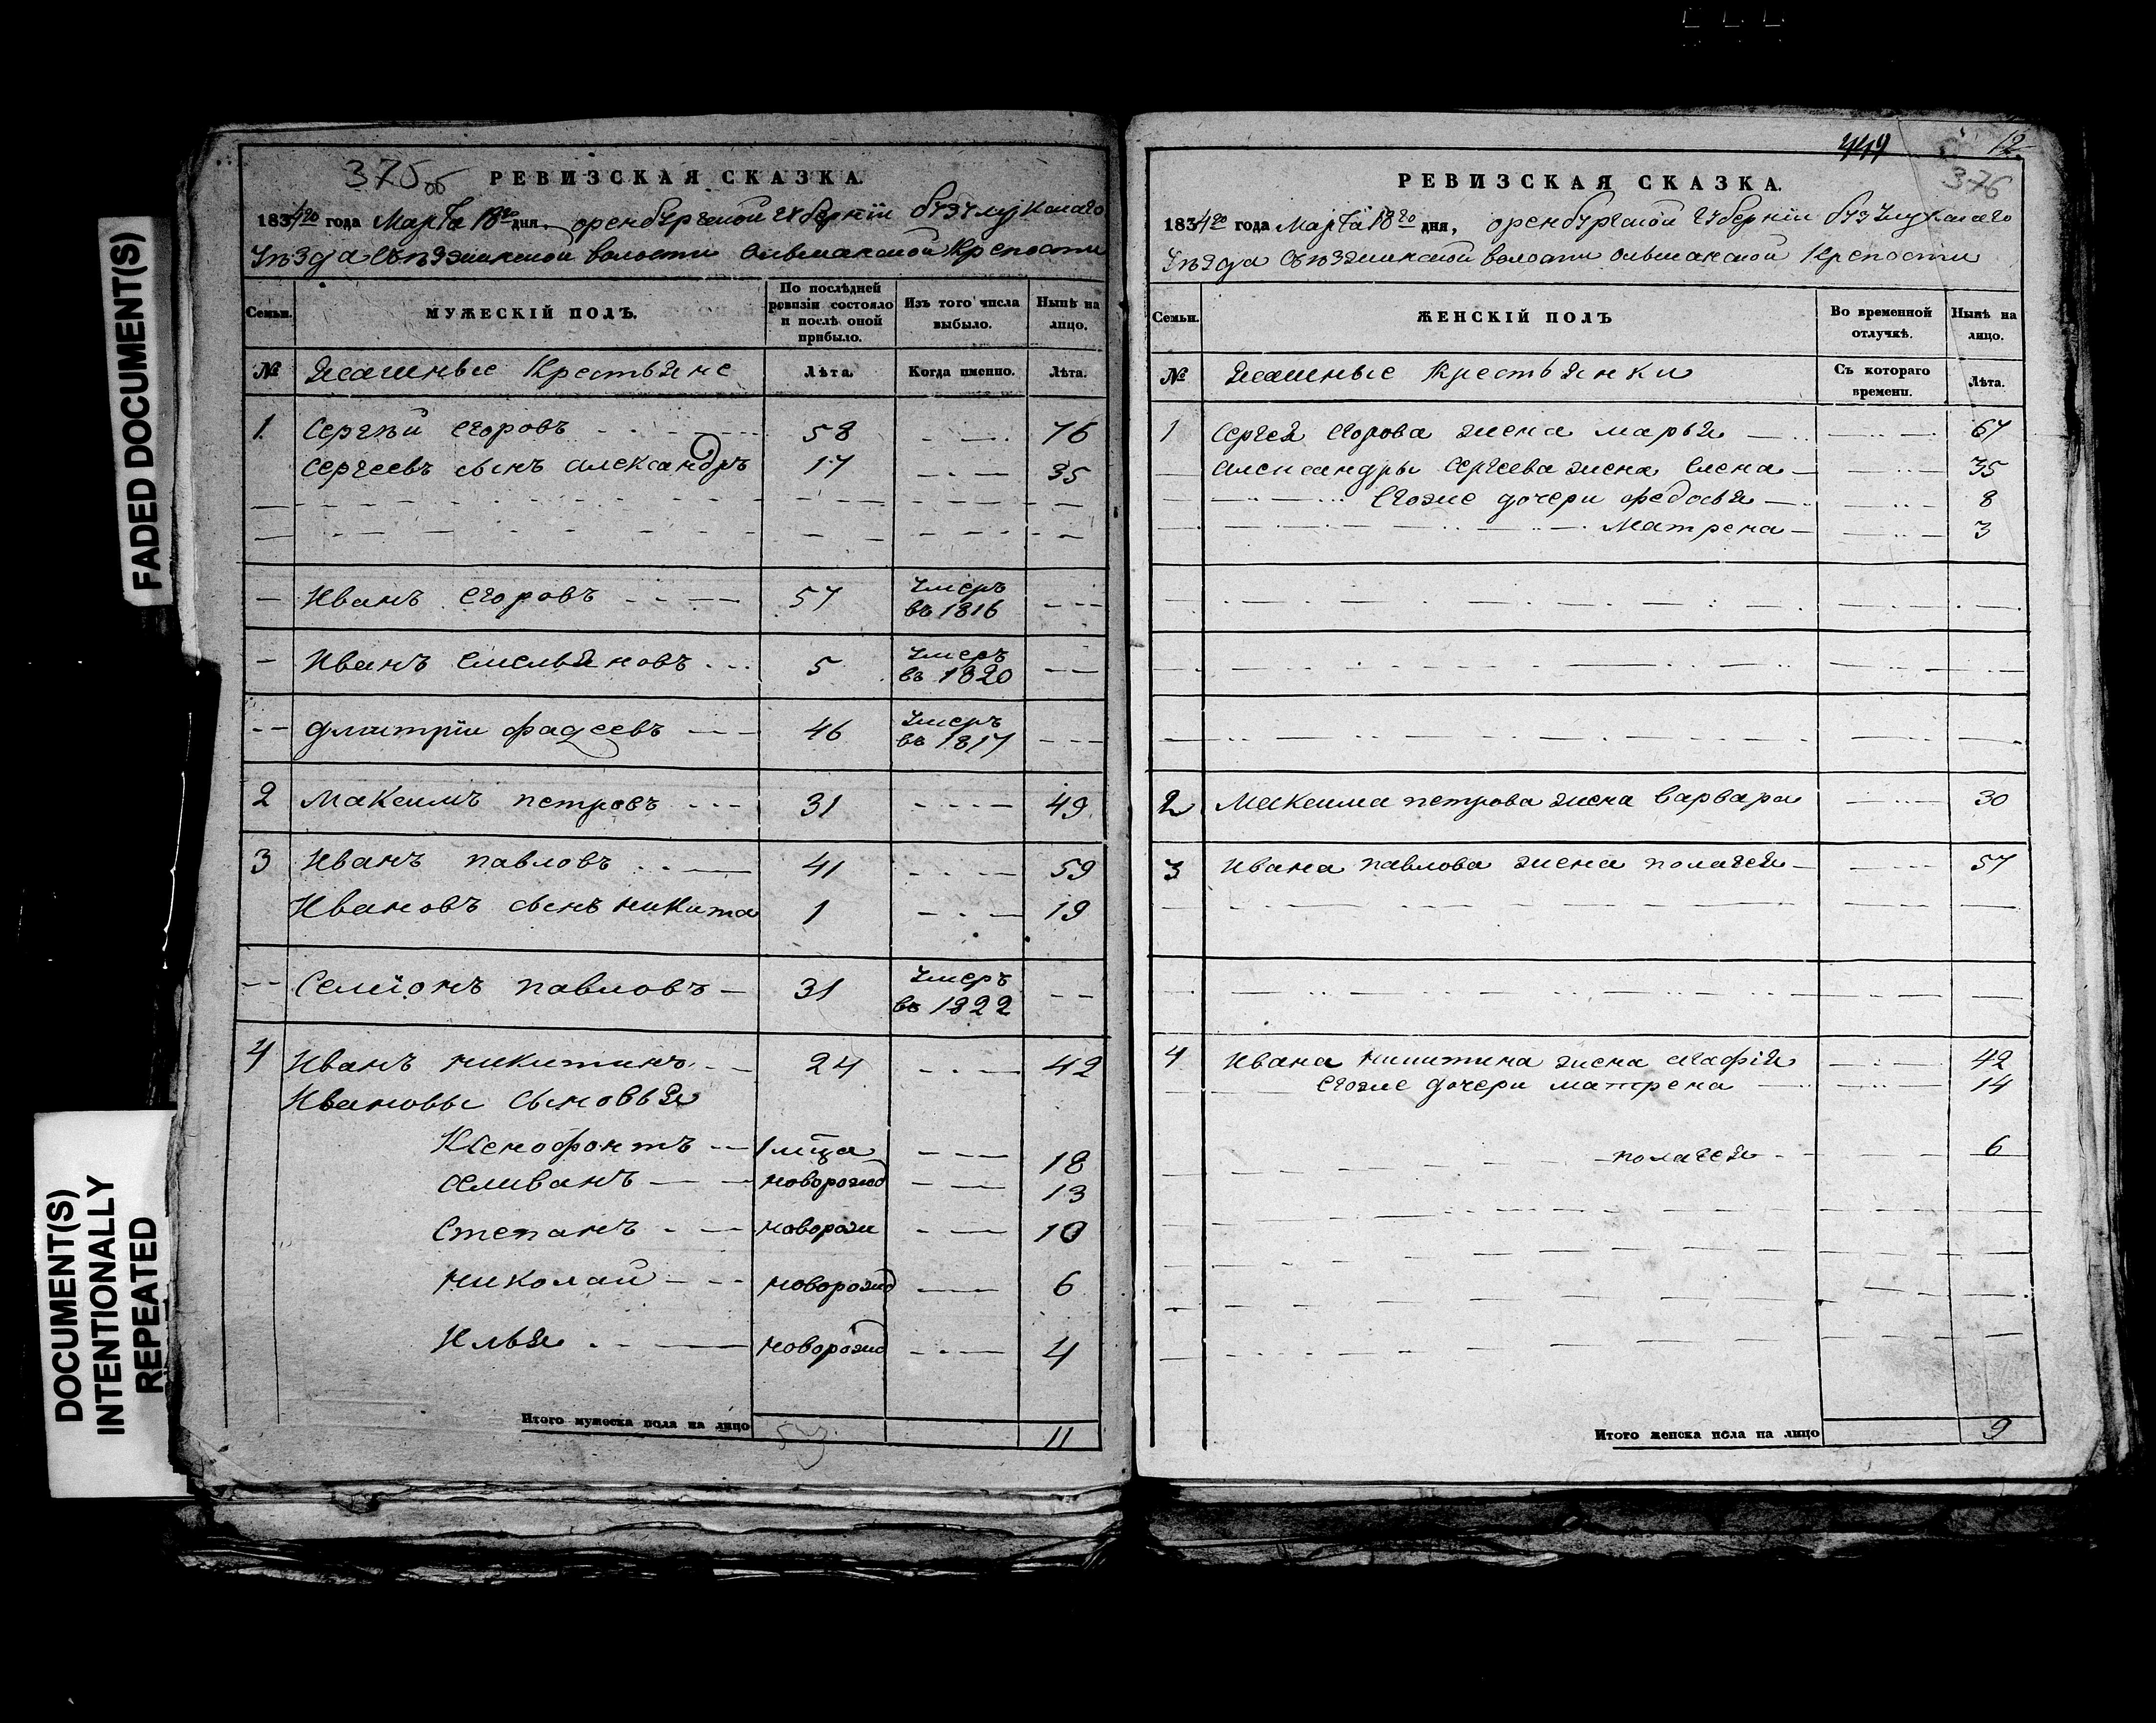 FADED DOCUMENT(S)
DOCUMENT(S)
INTENTIONALLY
REPEATED
375об
РЕВИЗСКАЯ СКАЗКА.
1834го года Марта 18го дня, оренбургской губерніи бузулукскаго
уѣзда съѣзжинской волости ольшанской крепости
Семьи.
МУЖЕСКІЙ ПОЛЪ.
По послѣдней ревизіи состояло и послѣ оной прибыло.
Изъ того числа выбыло.
Нынѣ на лицо.
№ Ясашные Крестьяне Лѣта. Когда именно. Лѣта.
1. Сергѣй егоровъ 58 76
Сергеевъ сынъ александръ 17 35
Иванъ егоровъ 57 умеръ въ 1816
Иванъ емельяновъ 5 умеръ въ 1820
дмитріи фадеевъ 46 умеръ въ 1817
2 Максимъ петровъ 31 49
3 Иванъ павловъ 41 59
Ивановъ сынъ никита 1 19
Семіонъ павловъ 31 умеръ въ 1822
4 Иванъ никитинъ 24 42
Ивановы сыновья
Ксенофонтъ 1 мца 18
селиванъ новорожд 13
Степанъ новорож 10
николай новорожд 6
Илья новорожд 4
Итого мужеска пола на лицо 11
449
12
376
РЕВИЗСКАЯ СКАЗКА.
1834го года Марта 18го дня, оренбургской губерніи бузулукскаго
уѣзда съѣзжинской волости ольшанской крепости
Семьи.
ЖЕНСКІЙ ПОЛЪ
Во временной отлучкѣ.
Нынѣ на лицо.
№ Ясашные крестьянки Съ котораго времени. Лѣта.
1 Сергея егорова жена марья 67
александры сергеева жена елена 35
егоже дочери федосья 8
матрена 3
2 Максима петрова жена варвара 30
3 Ивана павлова жена полагея 57
4 Ивана никитина жена агафія 42
егоже дочери матрена 14
полагея 6
Итого женска пола на лицо 9